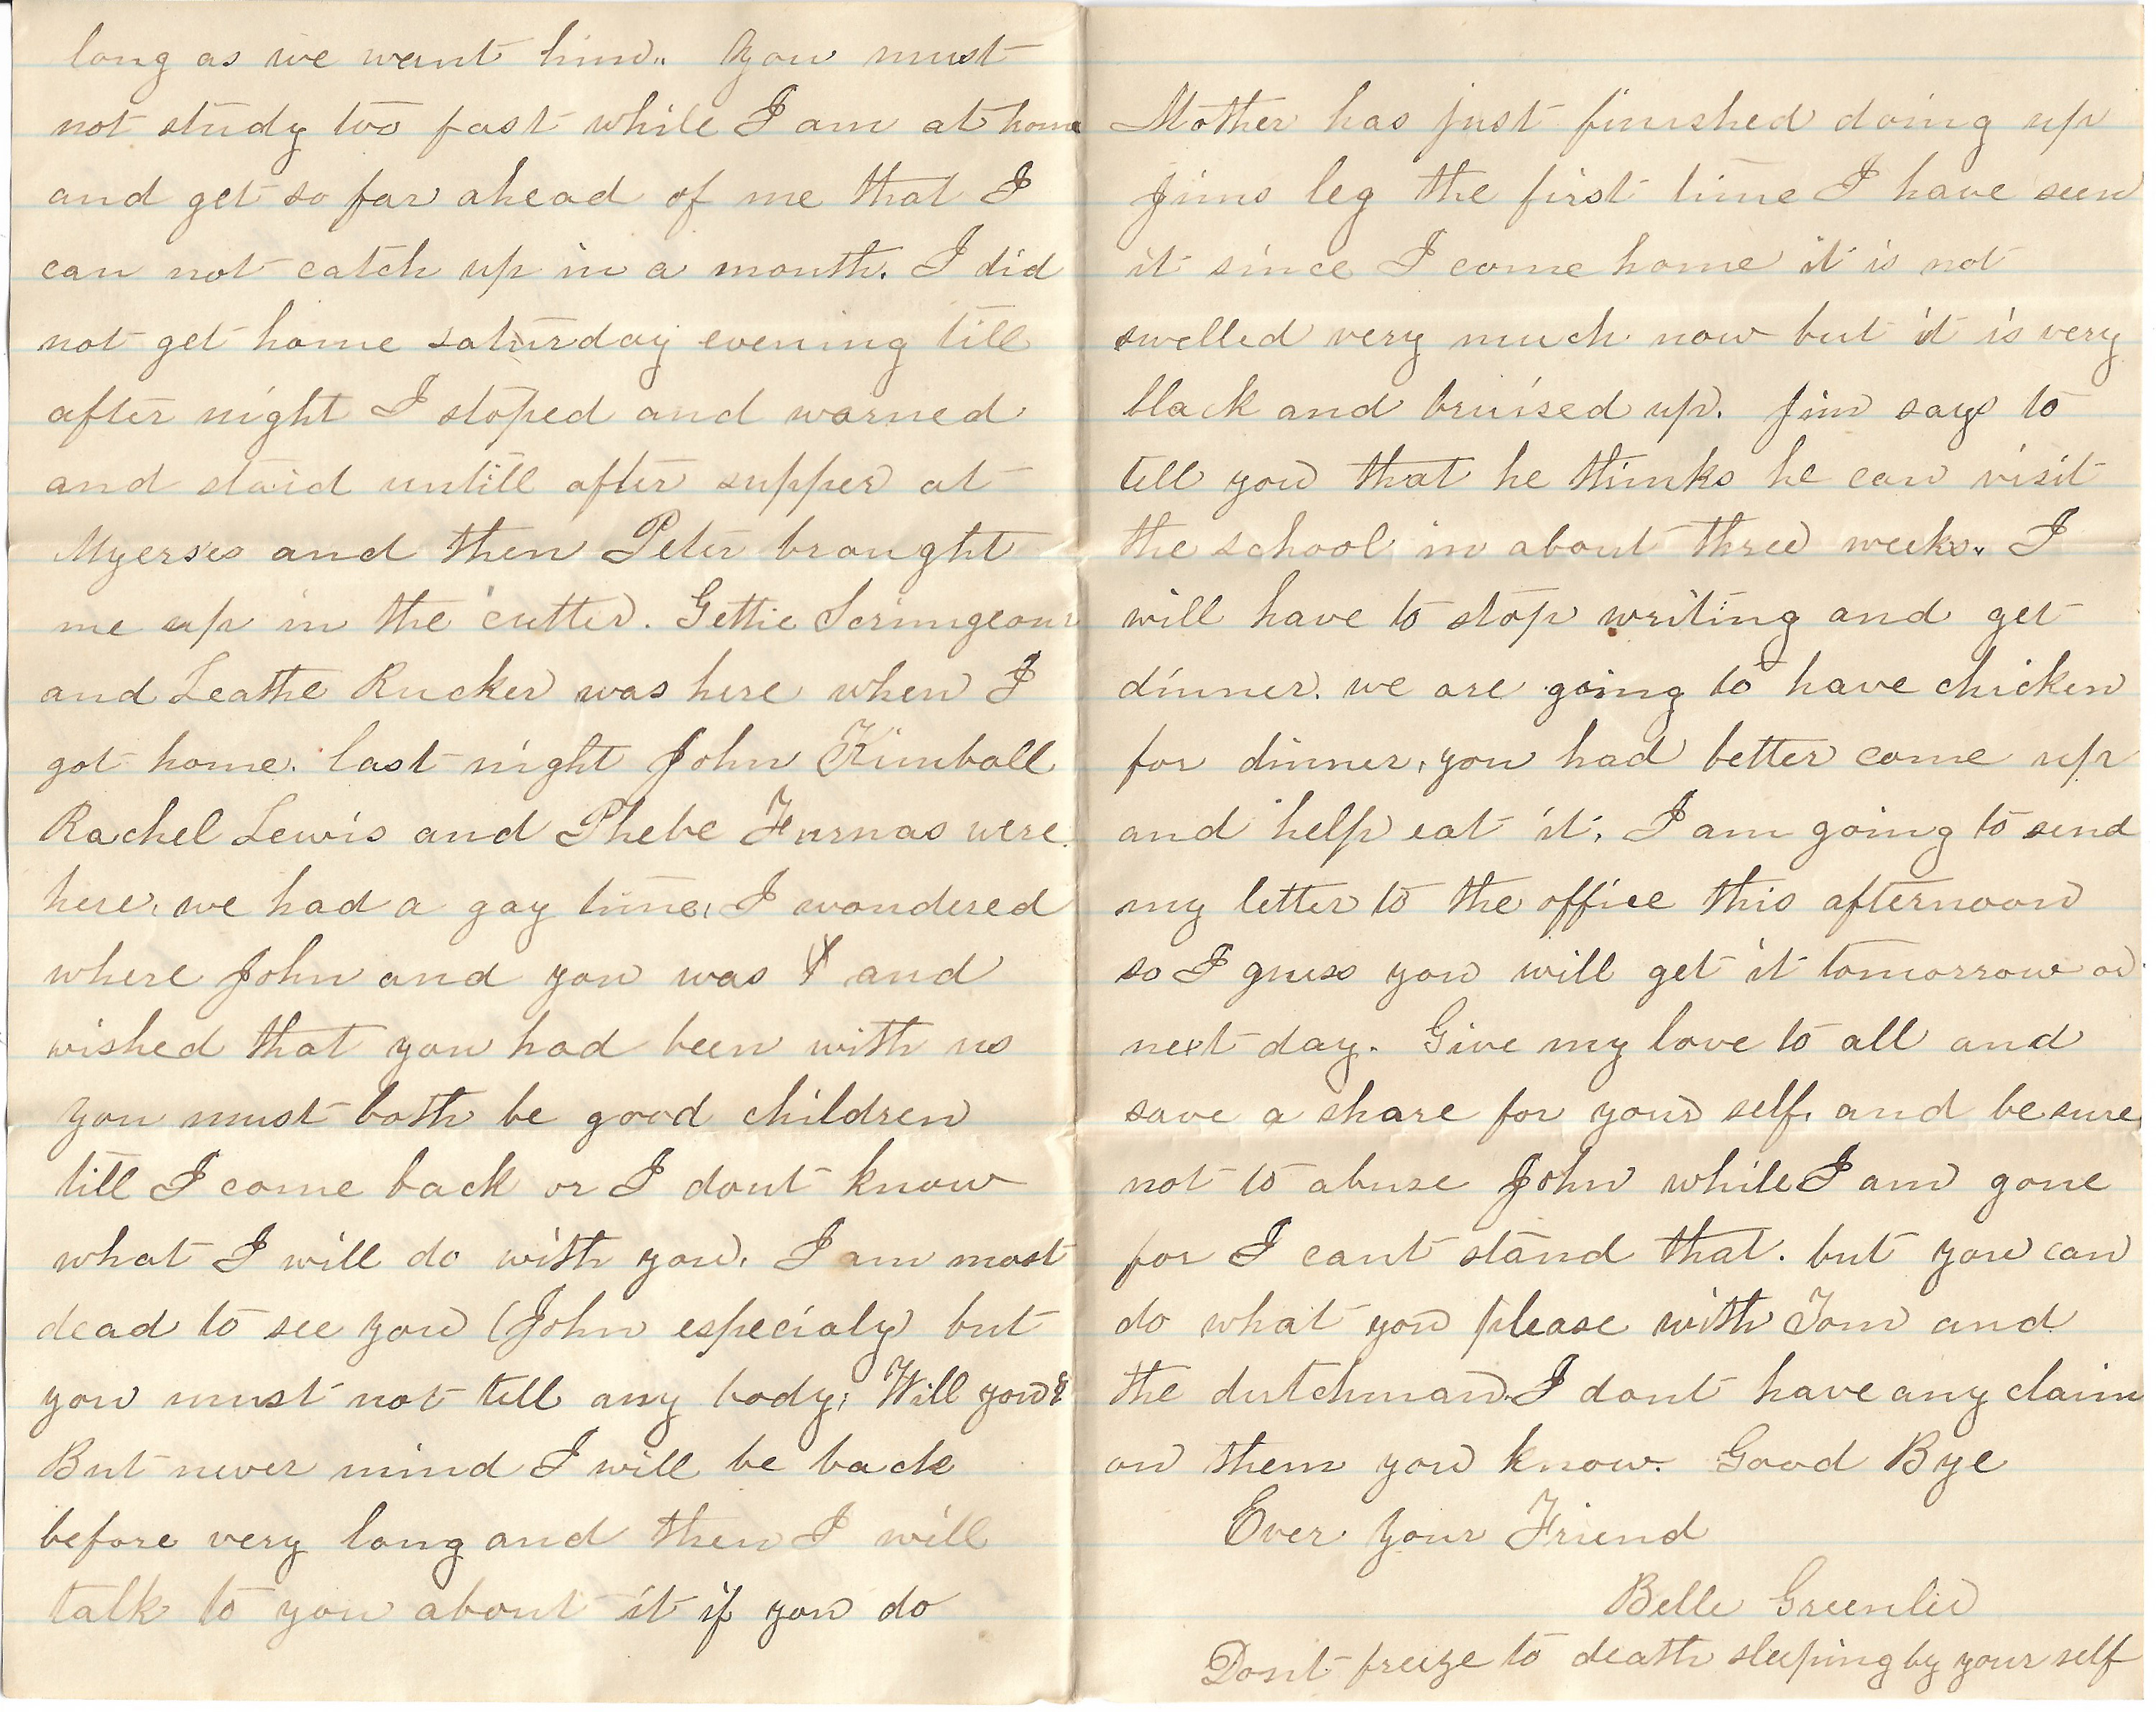 long as we want him. You must
not study too fast while I am at home
and get so far ahead of me that I
can not catch up in a month. I did
not get home saturday evening till
after night I stoped and warned
and staid untill after supper at
Myerses and then Peter braught
me up in the cutter. Gettie Scrimgeour
and Leathe Rucker was here when I
got home. last night John Kimball
Rachel Lewis and Phebe Furnas were
here, we had a gay time, I wondered
where John and you was & and
wished that you had been with us
you must both be good children
till I come back or I dont know
what I will do with you. I am most
dead to see you (John especialy) but
you must not tell any body; Will you?
But never mind I will be back
before very long and then I will
talk to you about it if you do
Mother has just finished doing up
Jims leg the first time I have seen
it since I come home it is not
swelled very much now but it is very
black and bruised up. Jim says to
tell you that he thinks he can visit
the school in about three weeks. I
will have to stop writing and get
dinner. we are going to have chicken
for dinner, you had better come up
and help eat it. I am going to send
my letter to the office this afternoon
so I guess you will get it tomorrow or
next day. Give my love to all and
save a share for your self. and be sure
not to abuse John while I am gone
for I cant stand that. but you can
do what you please with Tom and
the dutchman. I dont have any claim
on them you know. Good Bye
Ever Your Friend
Belle Greenlee
Dont freeze to death sleeping by your self